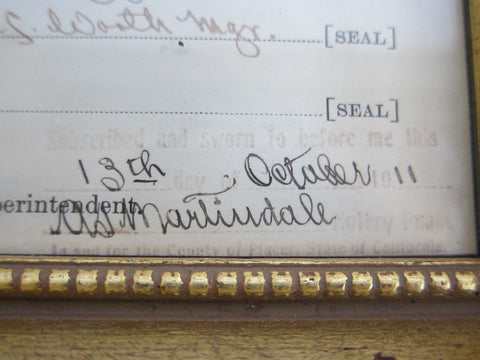 S. Worth Mgr. [SEAL]
[SEAL]
Subscribed and sworn to before me this
13th day of October 1911
perintendent. Martindale
Notary Public
In and for the County of Placer, State of California.